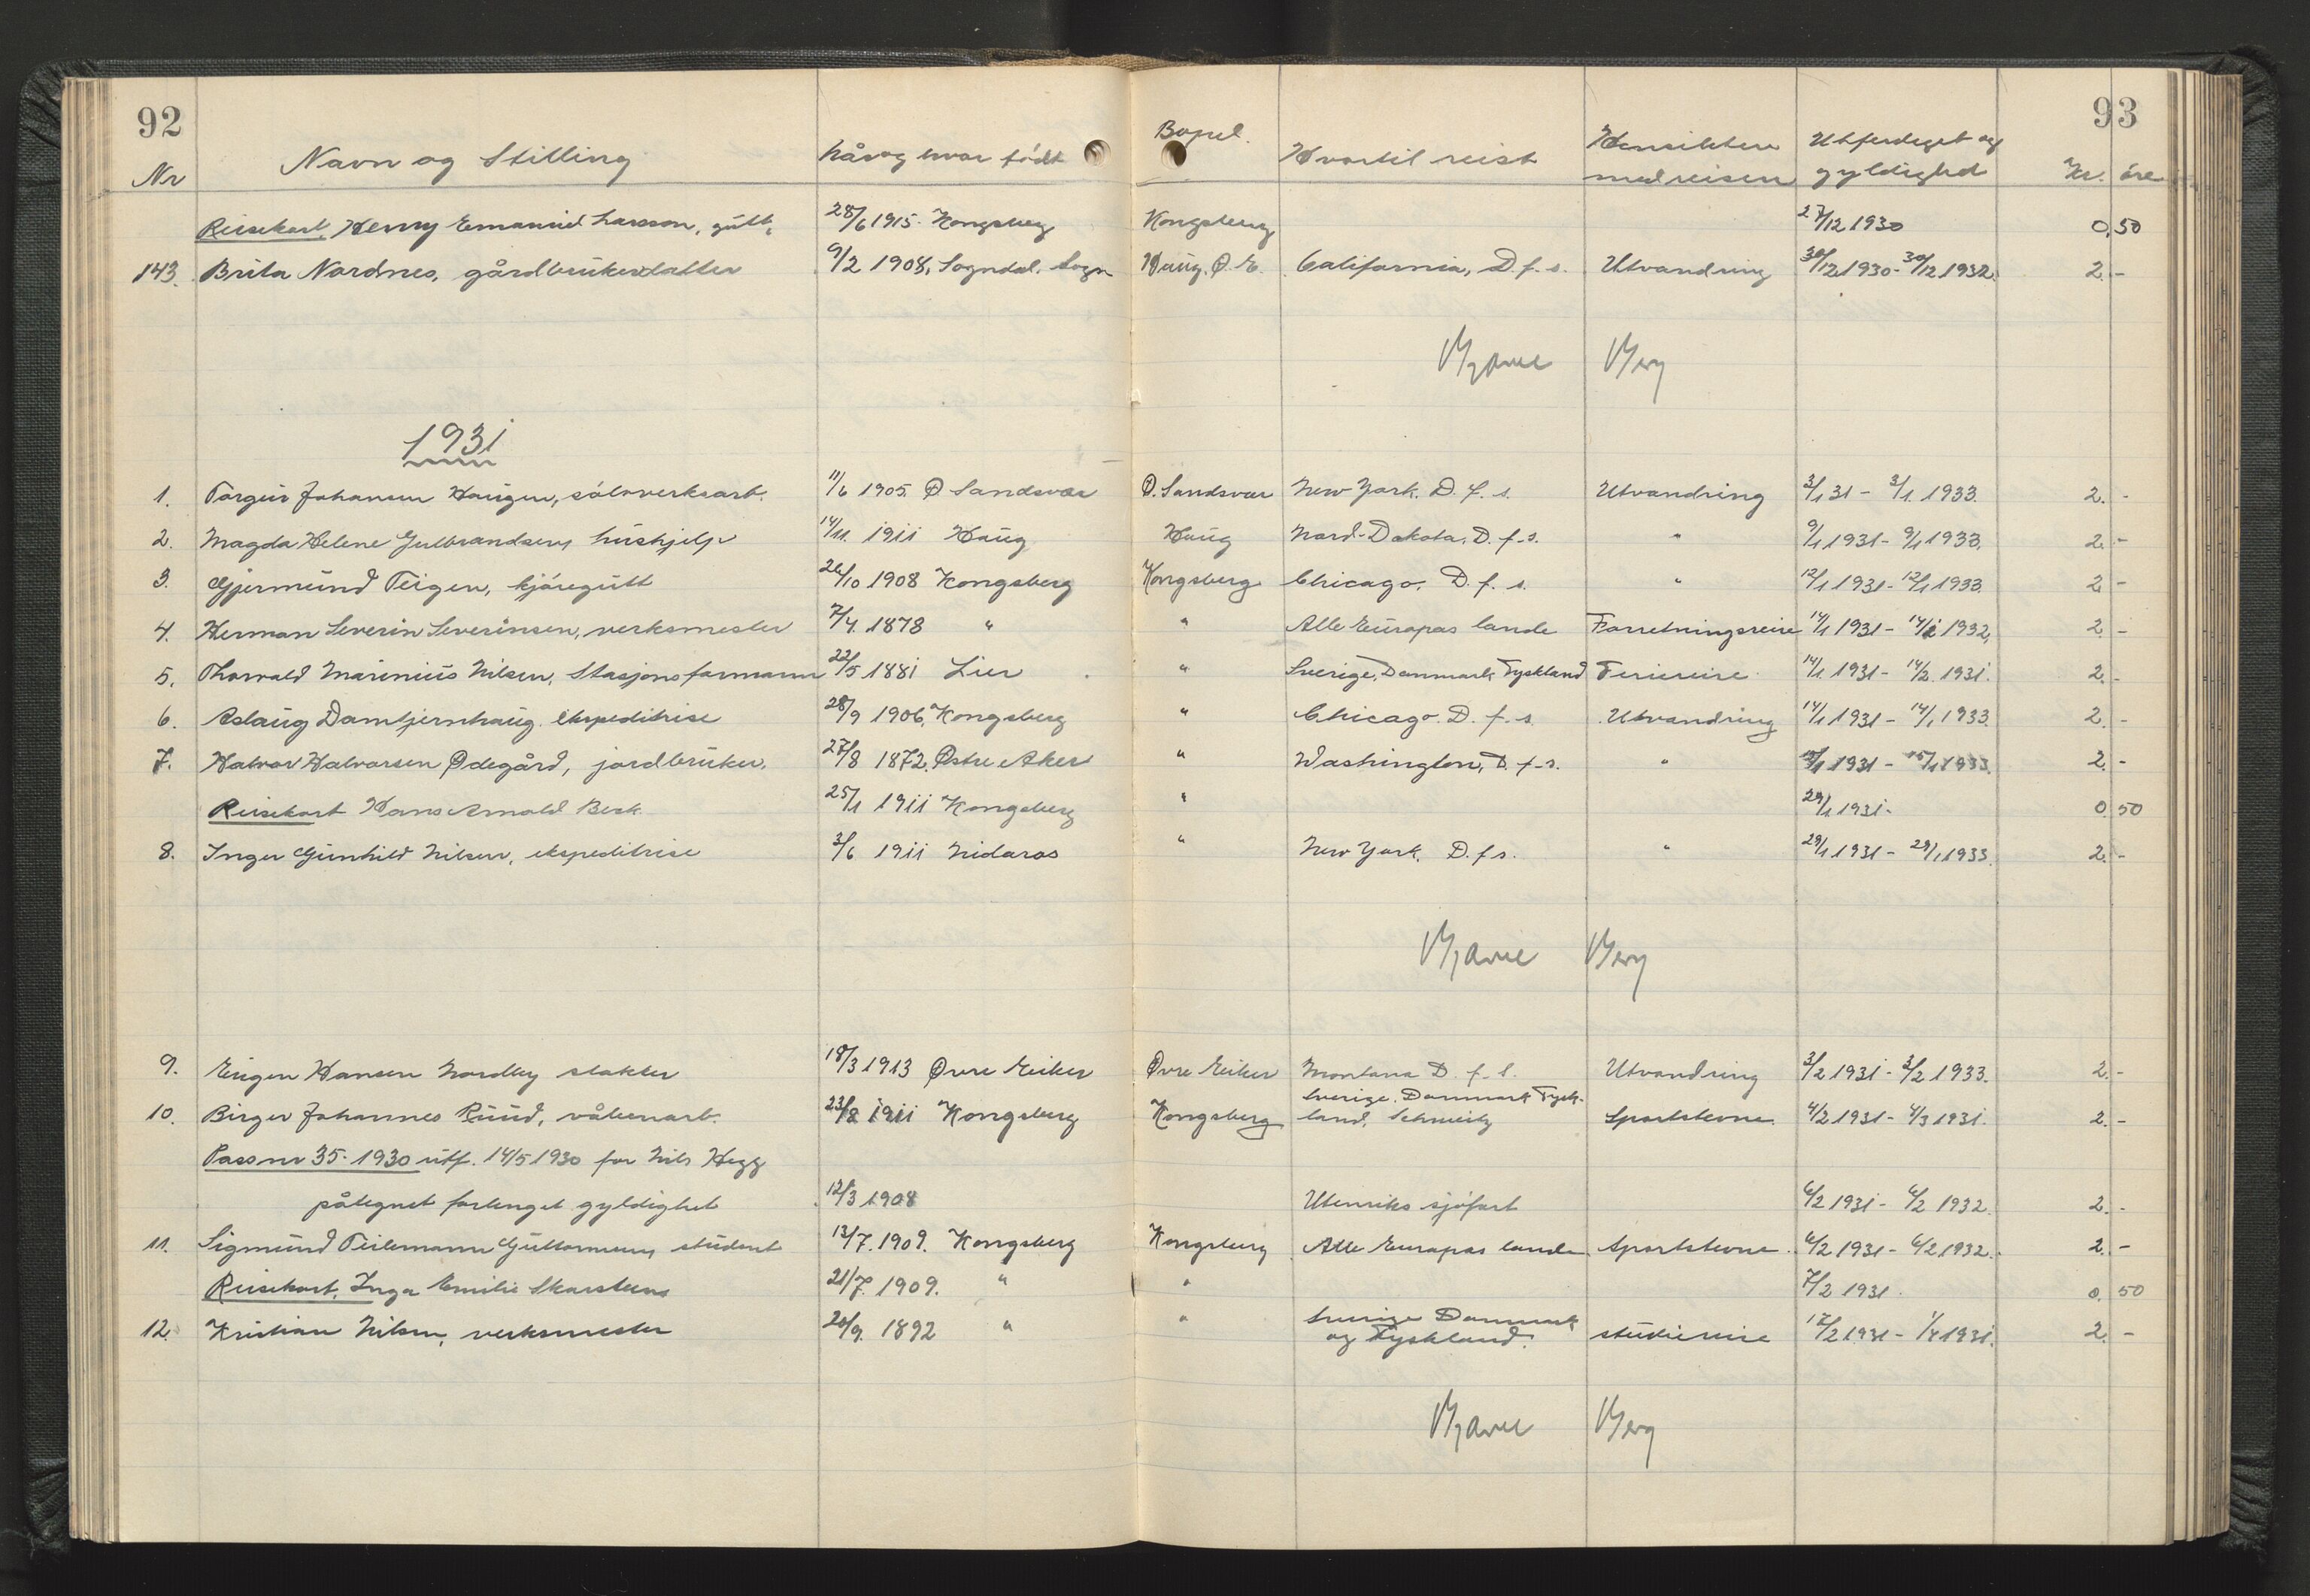 92
93
Nr Navn og Stilling når og hvor født Bopel. Hvortil reist Hensikten med reisen Utferdiget og gyldighed Kr. øre
Reisekort, Henry Emanuel Larsson, gutt, 28/6 1915. Kongsberg Kongsberg 27/12 1930 0,50
143. Brita Nordnes, gårdbrukerdatter 9/2 1908, Sogndal, Sogn Haug, Ø. E. California, D. f. s. Utvandring 30/12 1930 - 30/12 1932. 2.-
Bjarne Berg
1931
1. Torgeir Johansen Haugen, sølvverksarb. 11/6 1905. Ø Sandsvær Ø. Sandsvær New York. D. f. s. Utvandring 3/1 31 - 3/1. 1933. 2.-
2. Magda Helene Gulbrandsen, hushjelp 14/11. 1911 Haug Haug Nord-Dakota. D. f. s. " 9/1 1931 - 9/1 1933. 2.-
3. Gjermund Teigen, kjøregutt 26/10 1908 Kongsberg Kongsberg Chicago. D. f. s. " 12/1 1931 - 12/1 1933. 2.-
4. Herman Severin Severinsen, verksmester 7/4. 1878 " " Alle Europas lande Forretningsreise 14/1 1931 - 14/1 1932, 2.-
5. Thorvald Marinius Nilsen, Stasjonsformann 22/5 1881 Lier " Sverige, Danmark Tyskland Feriereise 14/1. 1931 - 14/2. 1931. 2.-
6. Aslaug Damtjernhaug. ekspeditrise 28/9 1906, Kongsberg " Chicago. D. f. s. Utvandring 14/1 1931 - 14/1 1933. 2.-
7. Halvor Halvorsen Ødegård, jordbruker. 27/8 1872. Østre Aker " Washington, D. f. s. " 15/1 1931 - 15/1 1933. 2.-
Reisekort Hans Arnold Berk 25/1 1911 Kongsberg " 29/1 1931. 0. 50
8. Inger Gunhild Nilsen, ekspeditrise 3/6 1911 Nidaros " New York. D. f. s. " 29/1 1931 - 29/1 1933. 2.-
Bjarne Berg
9. Eugen Hansen Nordby slakter 18/3 1913 Øvre Eiker Øvre Eiker Montana D. f. s. Utvandring 3/2 1931 - 3/2 1933. 2.-
10. Birger Johannes Ruud, våbenarb. 23/8 1911 Kongsberg Kongsberg Sverige, Danmark Tyskland, Schweitz Sportstevne. 4/2 1931 - 4/3 1931. 2.-
Pass nr 35-1930 utf. 14/5 1930 for Nils Hegg
påtegnet forlenget gyldighet 12/3 1908 Utenriks sjøfart 6/2 1931 - 6/2 1932. 2.-
11. Sigmund Teilemann Guttormsen, student 13/7. 1909. Kongsberg Kongsberg Alle Europas lande Sportstevne. 6/2 1931 - 6/2 1932. 2.-
Reisekort, Inga Emilie Skarsteen 21/7. 1909. " " 7/2 1931. 0. 50
12. Kristian Nilsen, verksmester 20/9. 1892 " " Sverige Danmark og Tyskland. studiereise 12/2 1931 - 1/4 1931. 2.-
Bjarne Berg